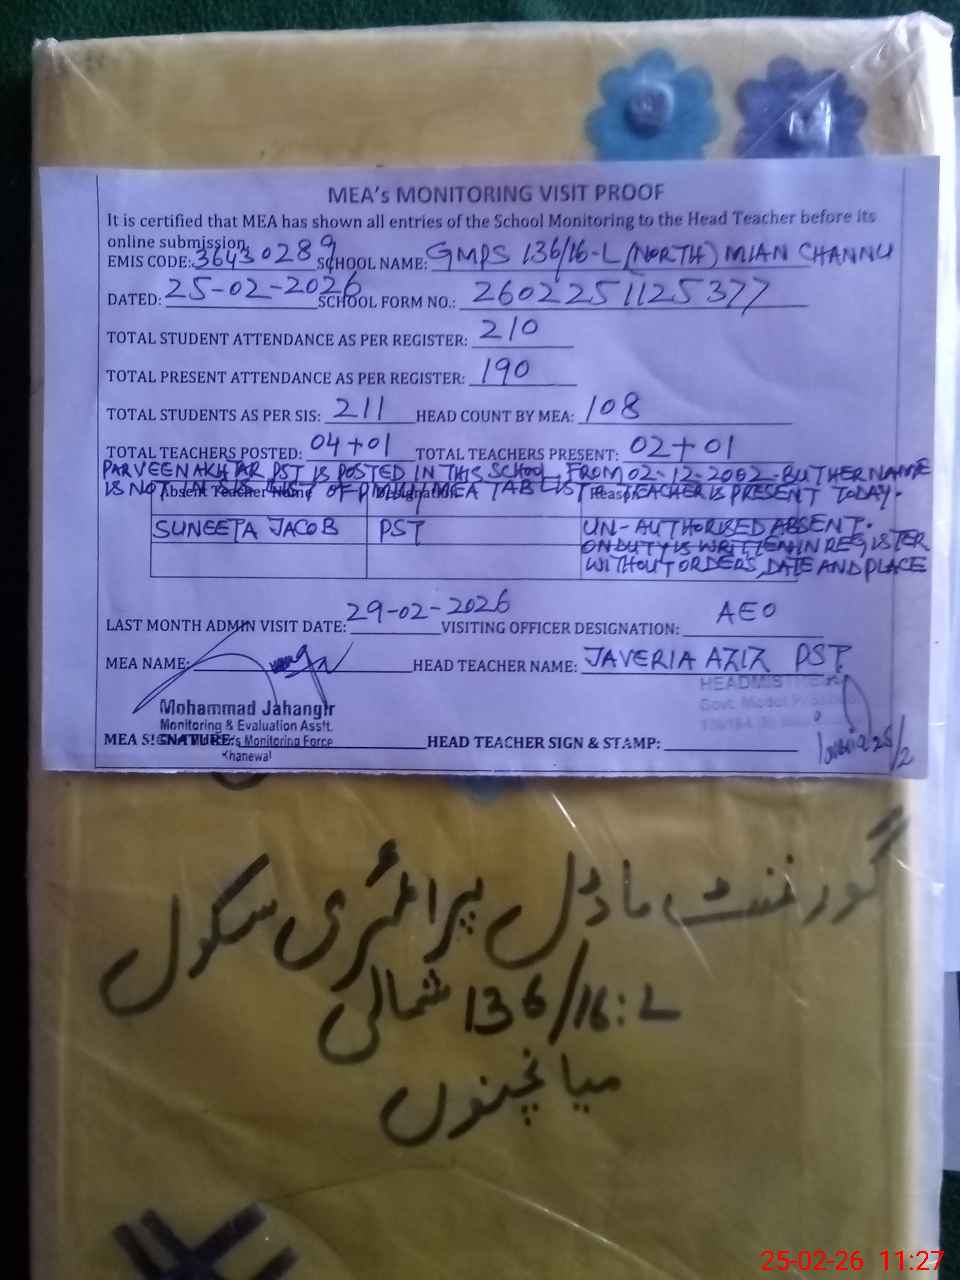 MEA's MONITORING VISIT PROOF
It is certified that MEA has shown all entries of the School Monitoring to the Head Teacher before its
online submission.
EMIS CODE: 36430289 SCHOOL NAME: GMPS 136/16-L (NORTH) MIAN CHANNU
DATED: 25-02-2026 SCHOOL FORM NO.: 2602251125377
TOTAL STUDENT ATTENDANCE AS PER REGISTER: 210
TOTAL PRESENT ATTENDANCE AS PER REGISTER: 190
TOTAL STUDENTS AS PER SIS: 211 HEAD COUNT BY MEA: 108
TOTAL TEACHERS POSTED: 04+01 TOTAL TEACHERS PRESENT: 02+01
PARVEEN AKHTAR PST IS POSTED IN THIS SCHOOL FROM 02-12-2002. BUT HER NAME
IS NOT IN SIS LIST OF PMIU MEA TAB LIST TEACHER IS PRESENT TODAY.
Absent Teacher Name Designation Reason
SUNEETA JACOB PST UN-AUTHORISED ABSENT.
ONDUTY IS WRITTEN IN REGISTER
WITHOUT ORDERS, DATE AND PLACE
LAST MONTH ADMIN VISIT DATE: 29-02-2026 VISITING OFFICER DESIGNATION: AEO
MEA NAME: HEAD TEACHER NAME: JAVERIA AZIZ PST
HEADMISTRESS
Govt. Model Primary
Mohammad Jahangir
Monitoring & Evaluation Asstt.
Monitoring Force
Khanewal
MEA SIGNATURE: HEAD TEACHER SIGN & STAMP:
25/2
گورنمنٹ ماڈل پرائمری سکول
136/16:L شمالی
میانچنوں
25-02-26 11:27